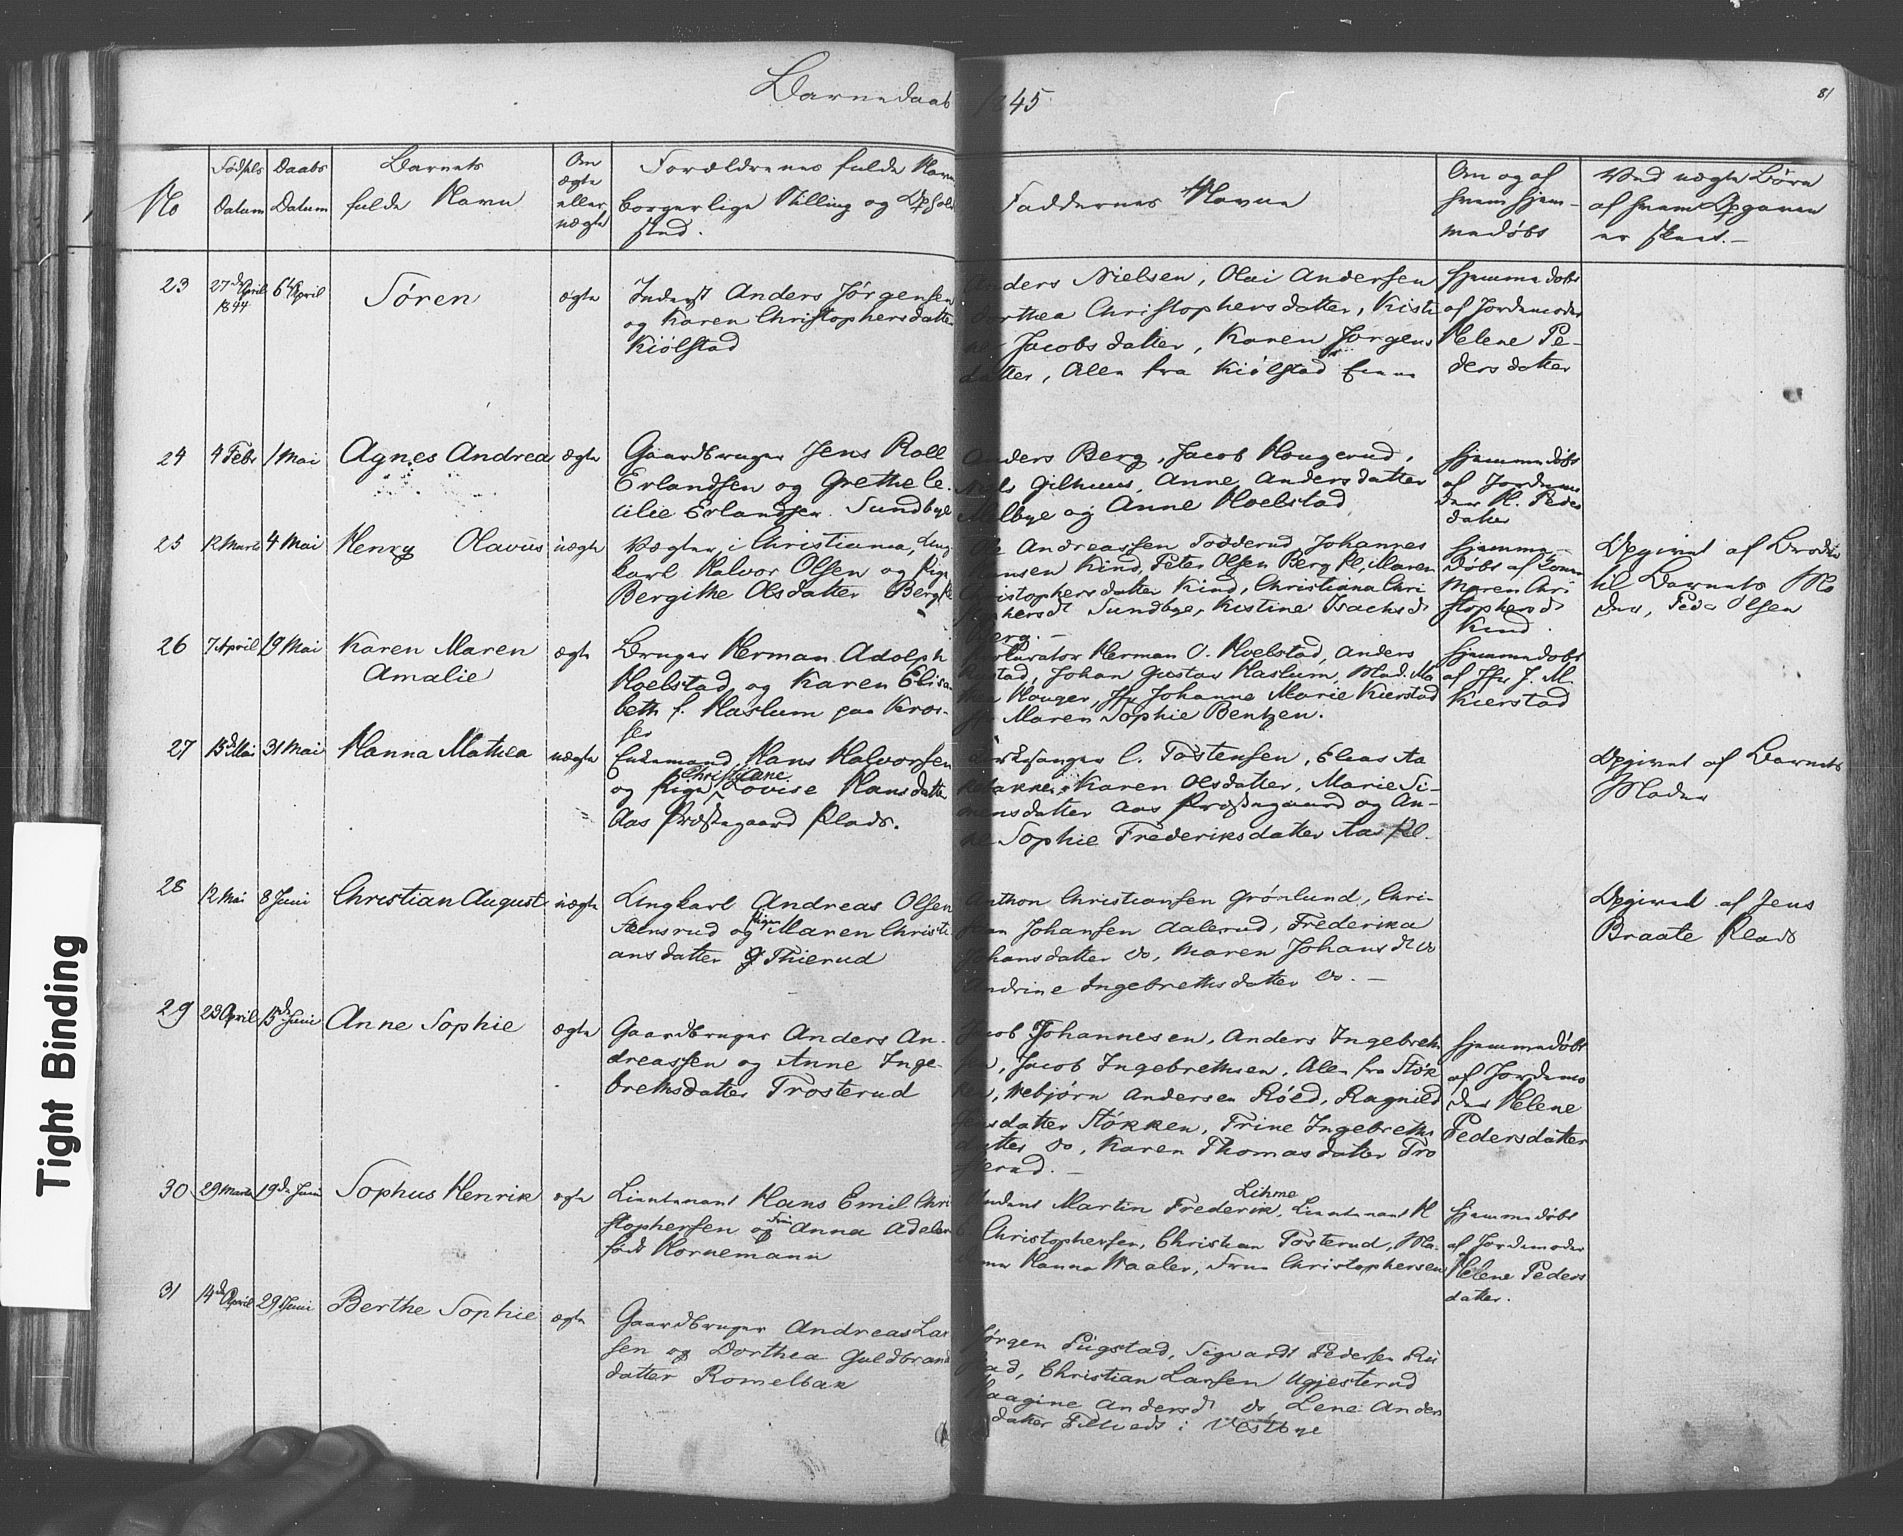 Barnedaab 1845
81
No
Fødsels Datum
Daabs Datum
Barnets fulde Navn
Om ægte eller uægte
Forældrenes fulde Navn
borgerlige Stilling og Opholds
sted.
Faddernes Navne
Om og af
hvem hjem-
medøbt
Ved uægte Børn
af hvem Opgaven
er skeet.-
23
27de April 1844
6te April
Sören
ægte
Inderst Anders Jörgensen
og Karen Christophersdatter
Kiölstad
Anders Nielsen, Olai Andersen
Dorthea Christophersdatter, Kisti
ne Jacobsdatter, Karen Jörgens
datter, Alle fra Kiölstad
Hjemmedøbt
af Jordemoder
Helene Pe-
dersdatter
24
4 Febr
1 Mai
Agnes Andrea
ægte
Gaardbruger Jens Roll
Erlandsen og Grethe Ce-
cilie Erlandsen Sundbye
Anders Berg, Jacob Hougerud,
Niels Gilhuus, Anne Andersdatter
Melbye og Anne Hoelstad
Hjemmedøbt
af Jordemo
der H. Peders
datter
25
12 Marts
4 Mai
Henry Olavus
uægte
Vægter i Christiania, Ung
karl Halvor Olsen og Pige
Bergithe Olsdatter Berg
Ole Andreassen Todderud, Johannes
Hansen Kind, Peter Olsen Berg Pl, Maren
Christophersdatter Kind, Christiana Chri
stophersdt Sundbye, Kistine Isachsd
Berg.-
Hjemme-
døbt af
Maren Chri
stophersd
Kind
Opgivet af Broder
til Barnets Mo
der, Peder Olsen
26
7 April
19 Mai
Karen Maren
Amalie
ægte
Bruger Herman Adolph
Hoelstad og Karen Elisa
beth f. Haslum paa Kros-
ser
Procurator Herman O. Hoelstad, Anders
Rustad, Johan Gustav Haslum, Mad. Ma
ren Houger, Jfr Johanne Marie Kierstad
Jfr Maren Sophie Bentzen.
Hjemmedøbt
af Jfr J. M.
Kierstad
27
13de Mai
31 Mai
Hanna Mathea
uægte
Enkemand Hans Halvorsen
og Pige Christiane Lovise Hansdatter
Aas Præstegaard Plads.
Kirkesanger C. Tostensen, Elias Aa
kebakken, Karen Olsdatter, Marie Si-
mensdatter Aas Præstegaard og An-
ne Sophie Frederiksdatter Aas Pl.
Opgivet af Barnets
Moder
28
12 Mai
8 Juni
Christian August
uægte
Ungkarl Andreas Olsen
Stensrud og Pigen Maren Christi
ansdatter Thierud
Anthon Christiansen Grönlund, Chri-
stian Johansen Aalerud, Frederika
Johansdatter do, Maren Johansdt do
Andrine Ingebrethsdatter do.-
Opgivet af Jens
Braate Plads
29
23 April
15de Juni
Anne Sophie
ægte
Gaardbruger Anders An-
dreassen og Anne Inge-
brethsdatter Trosterud
Jacob Johannesen, Anders Ingebreth
sen, Jacob Ingebrethsen, Alle fra Støk
ken, Nebjörn Andersen Röed, Ragnild
Jensdatter Støkken, Trine Ingebreths
datter do, Karen Thomasdatter Tro
sterud.-
Hjemmedøbt
af Jordemo
der Helene
Pedersdatter
30
29 Marts
19de Juni
Sophus Henrik
ægte
Lieutenant Hans Emil Chri
stophersen og Frue Anna Adeler
født Hornemann
Student Martin Frederik Lihme, Lieutenant H
E Christophersen, Christian Tosterud, Ma-
dame Hanna Waaler, Frue Christophersen
Hjemmedøbt
af Jordemoder
Helene Peders
datter.
31
14de April
29 Juni
Berthe Sophie
ægte
Gaardbruger Andreas Lar
sen og Dorthea Guldbrands
datter Romelbak
Jörgen Sugstad, Sigvardt Pedersen Ru
stad, Christian Larsen Ugjesterud
Haagine Andersdt do Lene Anders
datter FElveds i Vestbye
Tight Binding